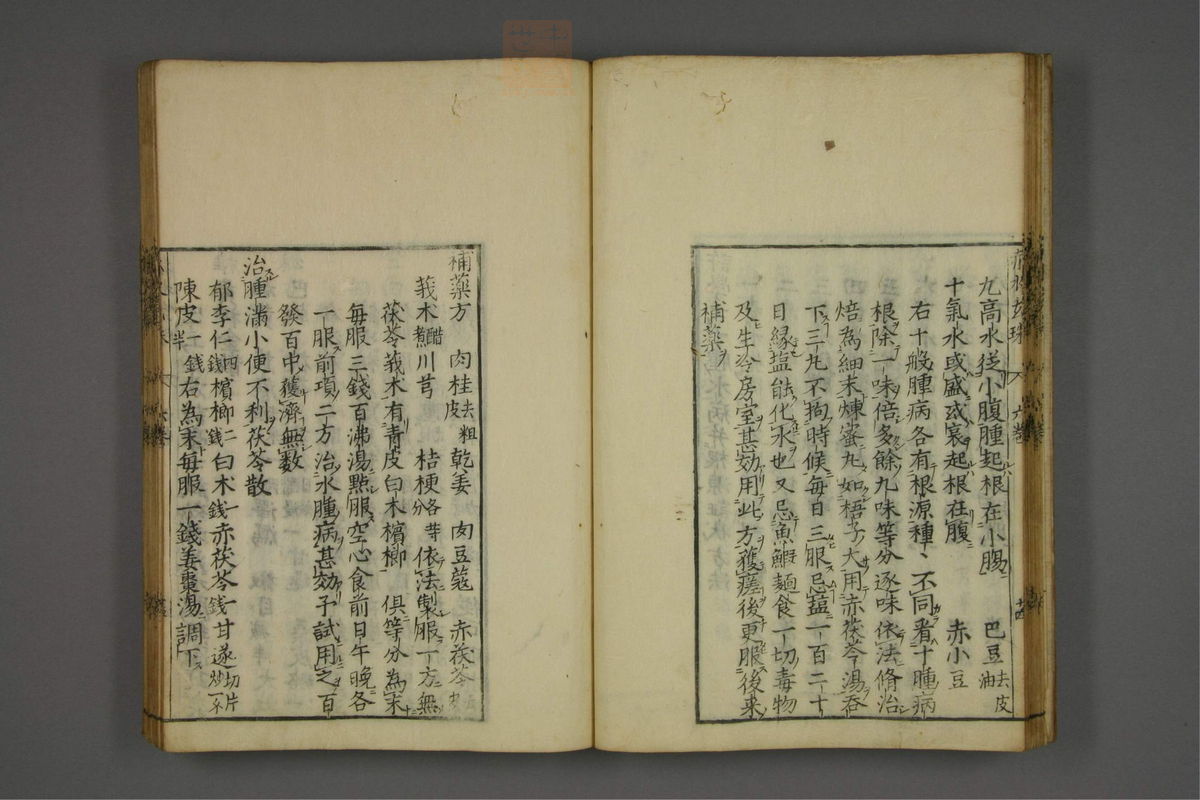 九高水從小腹腫起根在小腸 巴豆去皮油
十氣水或盛或衰起根在腹 赤小豆
右十般腫病各有根源種丶不同看十腫病
根除一味倍多餘九味等分逐味依法脩治
焙為細末煉蜜丸如梧子大用赤茯苓湯吞
下三丸不拘時候每日三服忌鹽一百二十
日緣塩能化水也又忌魚鰕麺食一切毒物
及生冷房室甚効用此方獲瘥後更服後來
補藥
補藥方 肉桂去粗皮 乾姜 肉豆蔻 赤茯苓
莪朮醋煮 川芎 桔梗各等分 依法製服一方無
茯苓莪朮有青皮白朮檳榔 俱等分為末
每服三錢百沸湯點服空心食前日午晩各
一服前項二方治水腫病甚効予試用之百
發百中獲濟無数
治腫滿小便不利茯苓散
郁李仁四錢 檳榔二錢 白朮一錢 赤茯苓一錢 甘遂切片炒
陳皮一錢半 右為末每服一錢姜棗湯調下